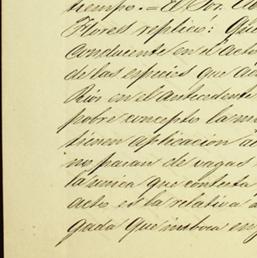 tiempo. = El Sor. Do
Flores replicó: Que
conducente en el acto
de las especies que a
Rios en el antecedente
pobre concepto la m
tienen aplicacion a
no pasan de vagas
la unica que contesta
acto es la relativa a
gada que invoca en